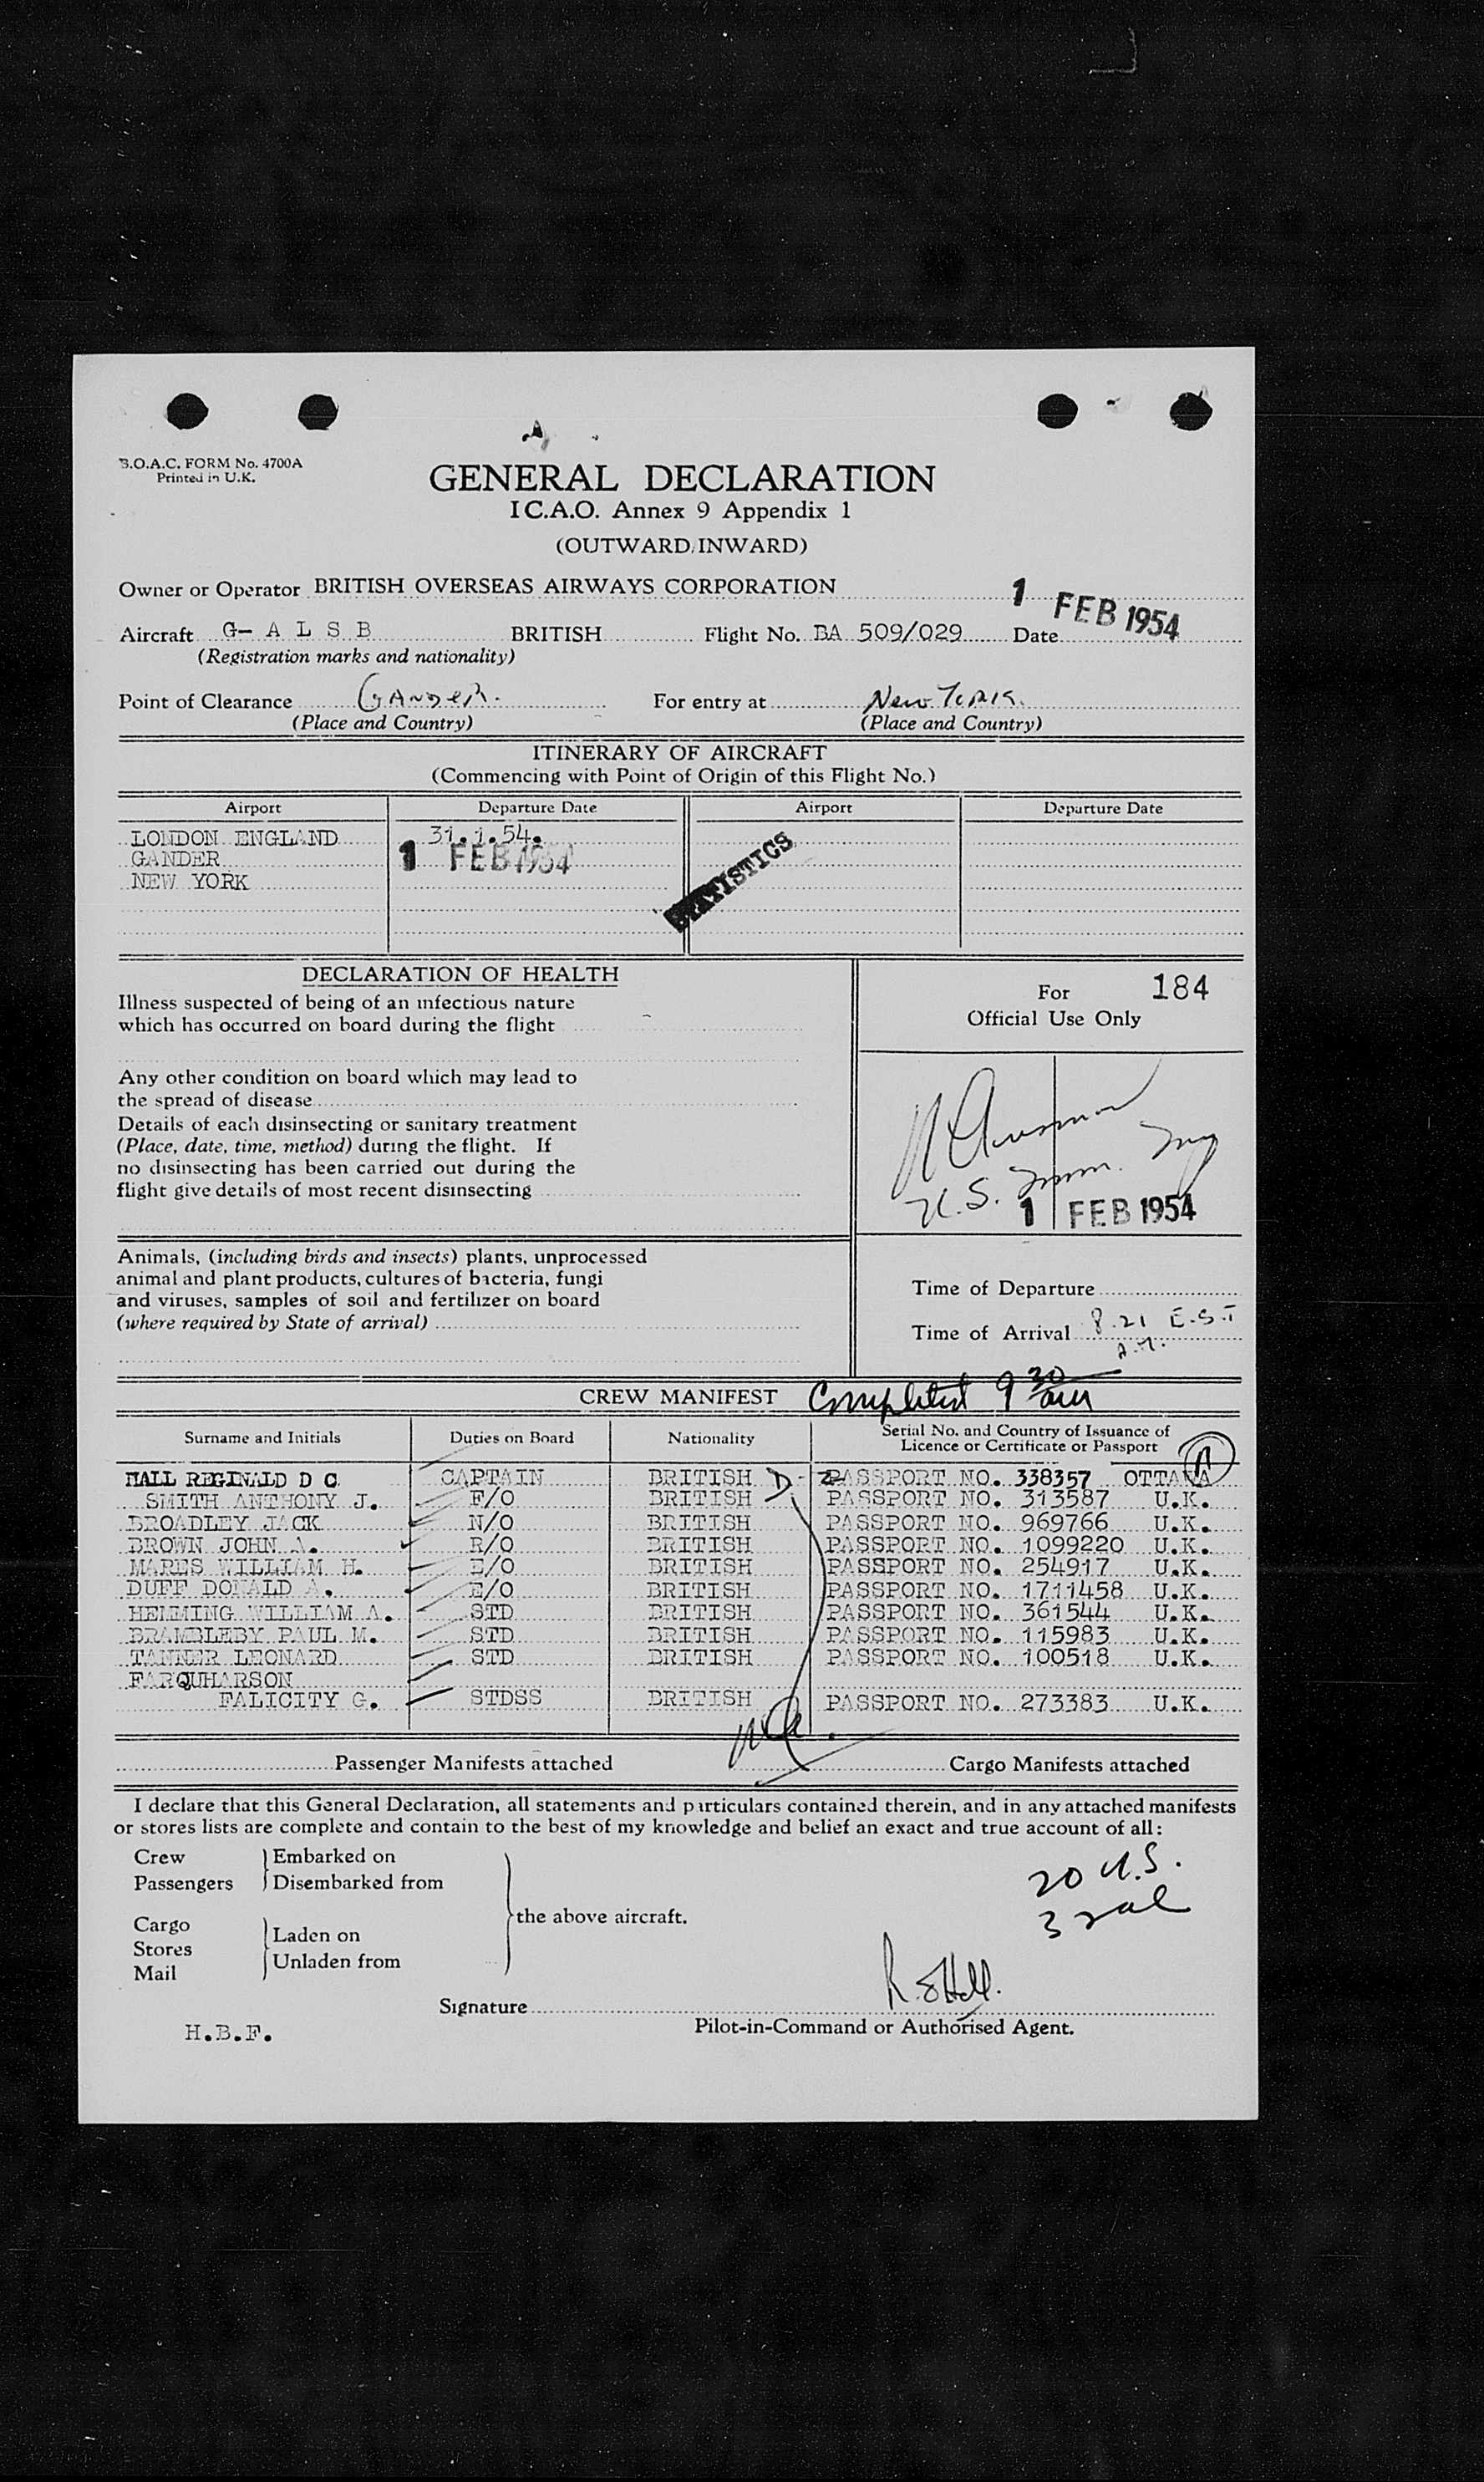 B.O.A.C. FORM No. 4700A
Printed in U.K.
GENERAL DECLARATION
I C.A.O. Annex 9 Appendix 1
(OUTWARD/INWARD)
Owner or Operator BRITISH OVERSEAS AIRWAYS CORPORATION
1 FEB 1954
Aircraft G- A L S B BRITISH Flight No. BA 509/029 Date
(Registration marks and nationality)
Point of Clearance GANDER. For entry at New York.
(Place and Country) (Place and Country)
ITINERARY OF AIRCRAFT
(Commencing with Point of Origin of this Flight No.)
Airport Departure Date Airport Departure Date
LONDON ENGLAND 31.1.54.
GANDER 1 FEB 1954
NEW YORK
STATISTICS
DECLARATION OF HEALTH
Illness suspected of being of an infectious nature
which has occurred on board during the flight
For 184
Official Use Only
Any other condition on board which may lead to
the spread of disease
Details of each disinsecting or sanitary treatment
(Place, date, time, method) during the flight. If
no disinsecting has been carried out during the
flight give details of most recent disinsecting
U.S. Imm. Insp
1 FEB 1954
Animals, (including birds and insects) plants, unprocessed
animal and plant products, cultures of bacteria, fungi
and viruses, samples of soil and fertilizer on board
(where required by State of arrival)
Time of Departure
Time of Arrival 8.21 E.S.T
A.M.
CREW MANIFEST Completed 9 30 am
Surname and Initials Duties on Board Nationality Serial No. and Country of Issuance of
Licence or Certificate or Passport
HALL REGINALD D C CAPTAIN BRITISH D-2 PASSPORT NO. 338357 OTTAWA
SMITH ANTHONY J. F/O BRITISH PASSPORT NO. 313587 U.K.
BROADLEY JACK N/O BRITISH PASSPORT NO. 969766 U.K.
BROWN JOHN A. R/O BRITISH PASSPORT NO. 1099220 U.K.
MARES WILLIAM H. E/O BRITISH PASSPORT NO. 254917 U.K.
DUFF DONALD A. E/O BRITISH PASSPORT NO. 1711458 U.K.
HEMMING WILLIAM A. STD BRITISH PASSPORT NO. 361544 U.K.
BRAMBLEBY PAUL M. STD BRITISH PASSPORT NO. 115983 U.K.
TANNER LEONARD STD BRITISH PASSPORT NO. 100518 U.K.
FARQUHARSON
FALICITY G. STDSS BRITISH PASSPORT NO. 273383 U.K.
Passenger Manifests attached Cargo Manifests attached
I declare that this General Declaration, all statements and particulars contained therein, and in any attached manifests
or stores lists are complete and contain to the best of my knowledge and belief an exact and true account of all:
Crew Embarked on
Passengers Disembarked from
the above aircraft.
Cargo Laden on
Stores Unladen from
Mail
20 U.S.
3
Signature
H.B.F. Pilot-in-Command or Authorised Agent.